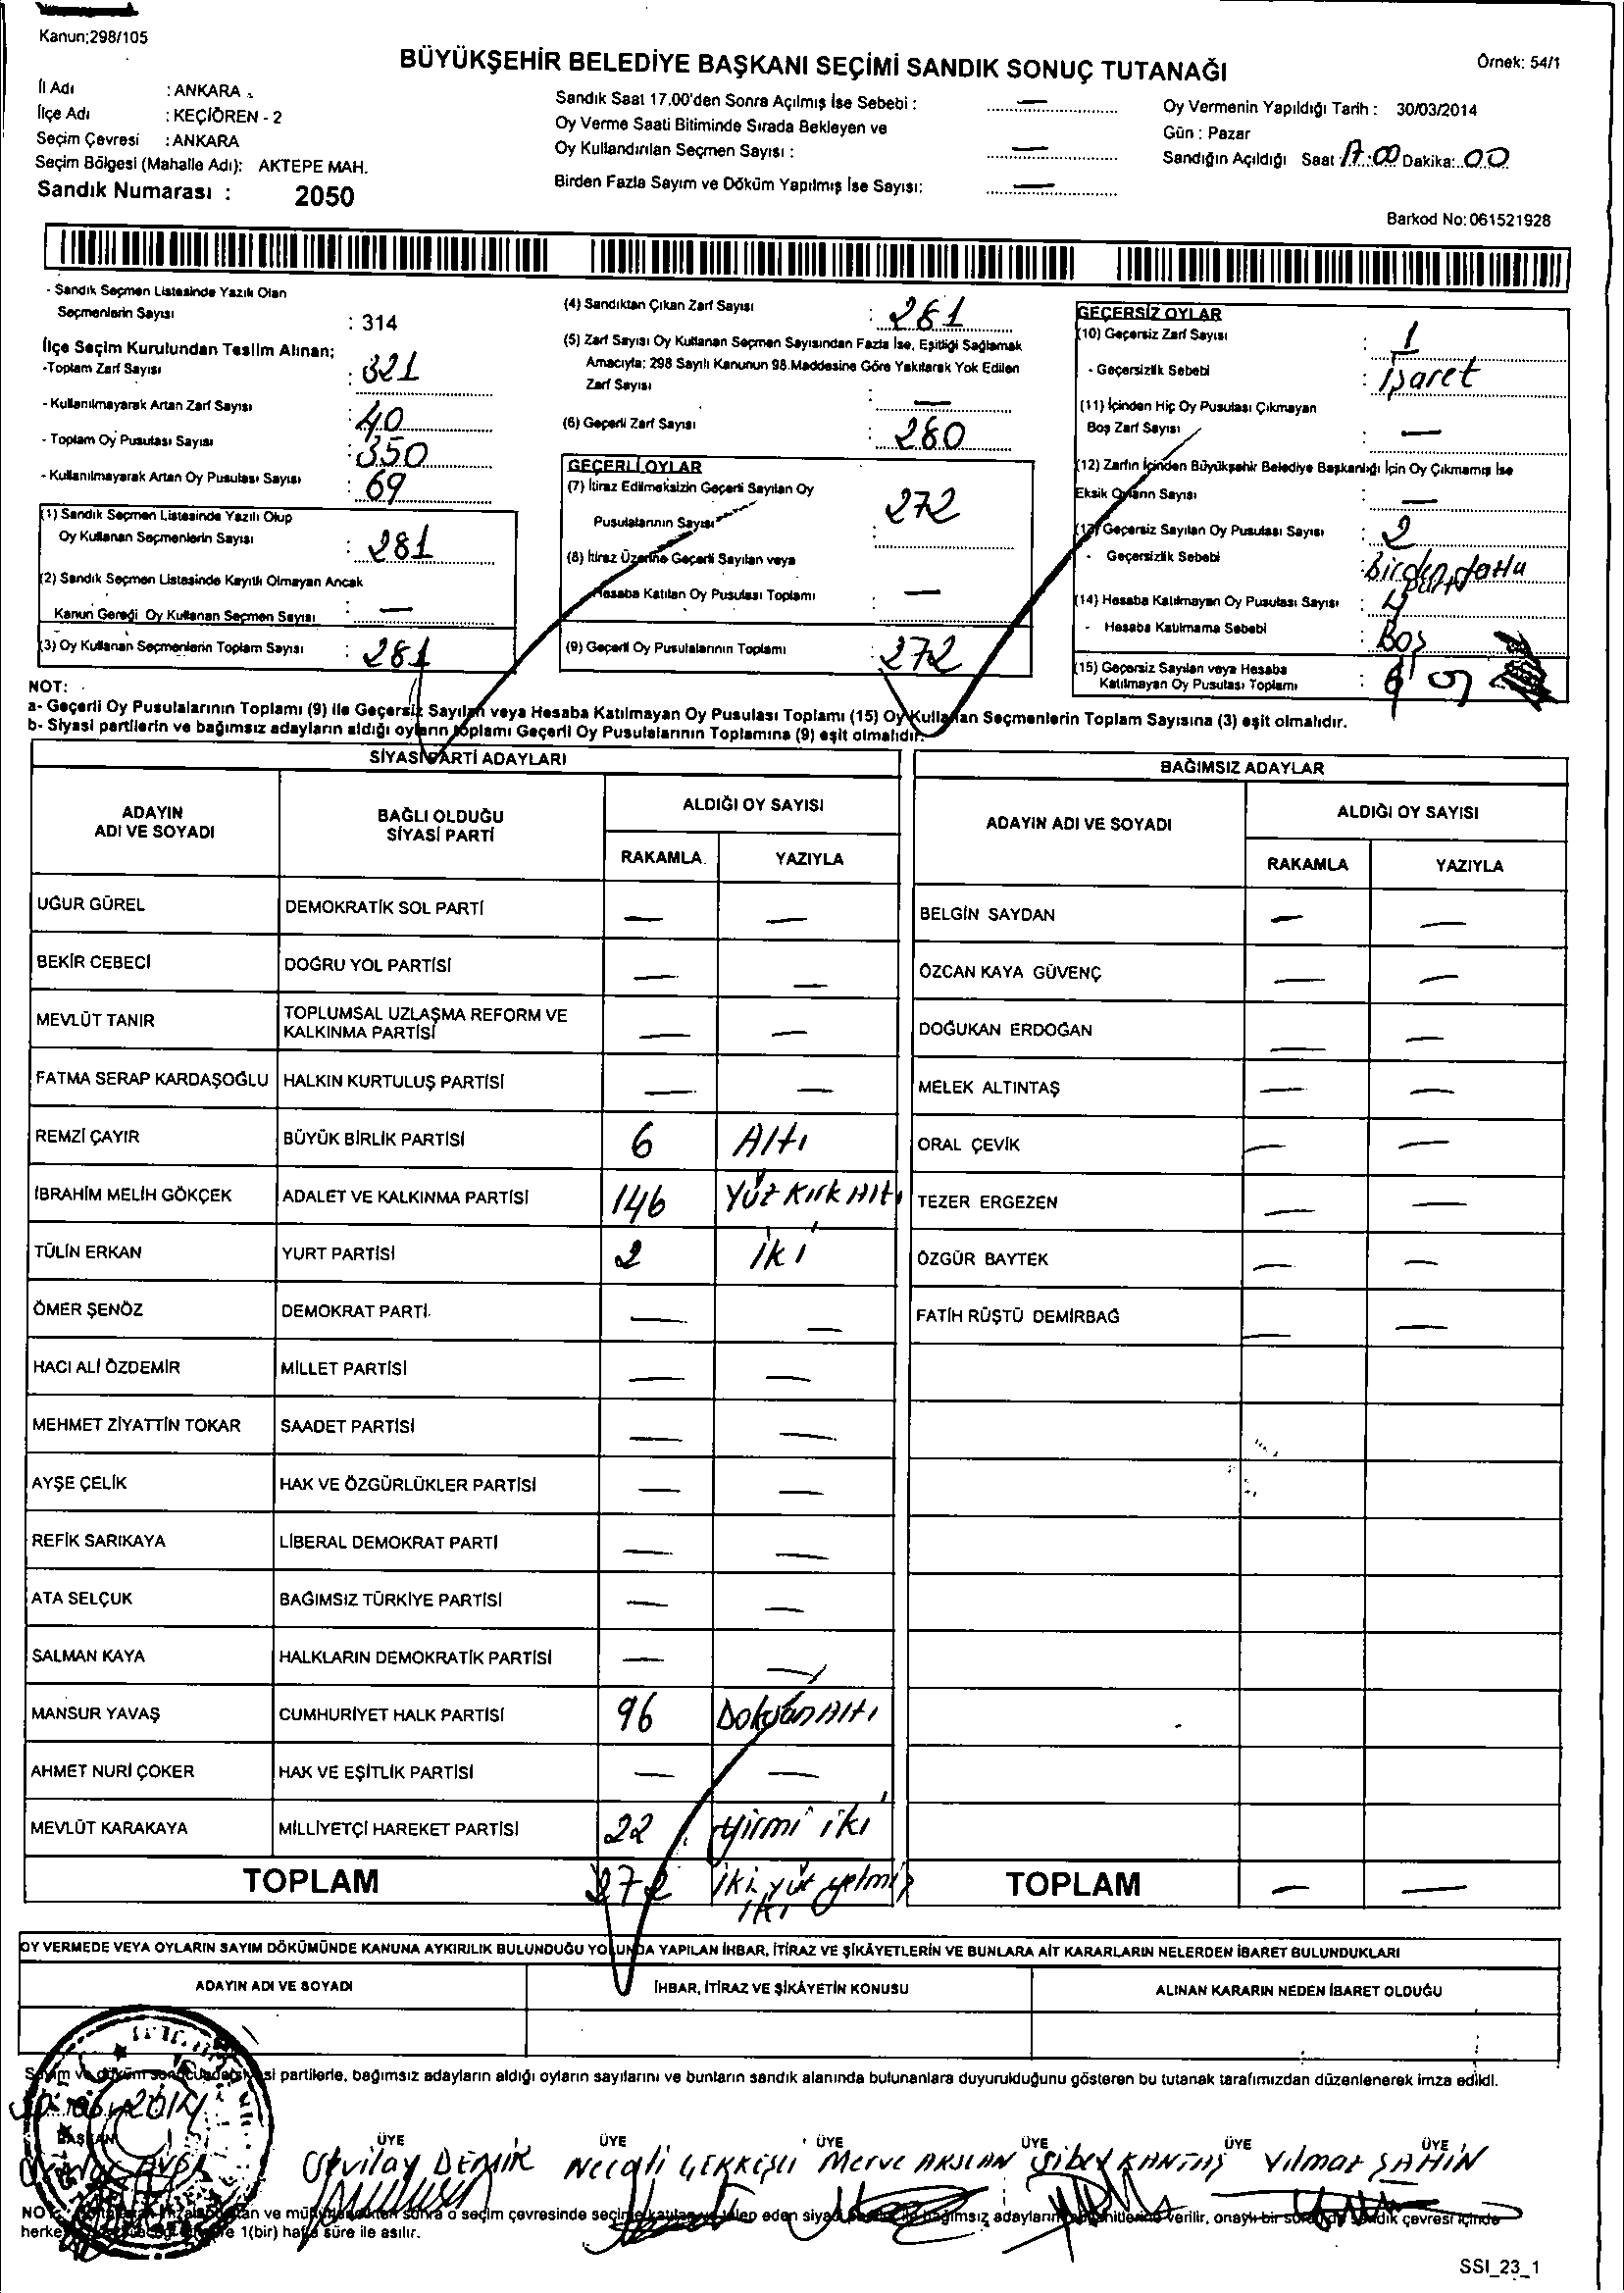 Kanun;298/105
BÜYÜKŞEHİR BELEDİYE BAŞKANI SEÇİMİ SANDIK SONUÇ TUTANAĞI
Örnek: 54/1
İl Adı : ANKARA
İlçe Adı : KEÇİÖREN - 2
Seçim Çevresi : ANKARA
Seçim Bölgesi (Mahalle Adı): AKTEPE MAH.
Sandık Numarası : 2050
Sandık Saat 17.00'den Sonra Açılmış İse Sebebi : —
Oy Verme Saati Bitiminde Sırada Bekleyen ve
Oy Kullandırılan Seçmen Sayısı : —
Birden Fazla Sayım ve Döküm Yapılmış İse Sayısı: —
Oy Vermenin Yapıldığı Tarih : 30/03/2014
Gün : Pazar
Sandığın Açıldığı Saat 17:00 Dakika: 00
Barkod No: 061521928
- Sandık Seçmen Listesinde Yazılı Olan
Seçmenlerin Sayısı : 314
İlçe Seçim Kurulundan Teslim Alınan;
-Toplam Zarf Sayısı : 321
- Kullanılmayarak Artan Zarf Sayısı : 40
- Toplam Oy Pusulası Sayısı : 350
- Kullanılmayarak Artan Oy Pusulası Sayısı : 69
(1) Sandık Seçmen Listesinde Yazılı Olup
Oy Kullanan Seçmenlerin Sayısı : 281
(2) Sandık Seçmen Listesinde Kayıtlı Olmayan Ancak
Kanun Gereği Oy Kullanan Seçmen Sayısı : —
(3) Oy Kullanan Seçmenlerin Toplam Sayısı : 281
(4) Sandıktan Çıkan Zarf Sayısı : 281
(5) Zarf Sayısı Oy Kullanan Seçmen Sayısından Fazla İse, Eşitliği Sağlamak
Amacıyla; 298 Sayılı Kanunun 98.Maddesine Göre Yakılarak Yok Edilen
Zarf Sayısı : —
(6) Geçerli Zarf Sayısı : 280
GEÇERLİ OYLAR
(7) İtiraz Edilmeksizin Geçerli Sayılan Oy
Pusulalarının Sayısı : 272
(8) İtiraz Üzerine Geçerli Sayılan veya
Hesaba Katılan Oy Pusulası Toplamı : —
(9) Geçerli Oy Pusulalarının Toplamı : 272
GEÇERSİZ OYLAR
(10) Geçersiz Zarf Sayısı : 1
- Geçersizlik Sebebi : işaret
(11) İçinden Hiç Oy Pusulası Çıkmayan
Boş Zarf Sayısı : —
(12) Zarfın İçinden Büyükşehir Belediye Başkanlığı İçin Oy Çıkmamış İse
Eksik Oyların Sayısı : —
(13) Geçersiz Sayılan Oy Pusulası Sayısı : 2
- Geçersizlik Sebebi : Birden fazla
(14) Hesaba Katılmayan Oy Pusulası Sayısı : 4
- Hesaba Katılmama Sebebi : Boş
(15) Geçersiz Sayılan veya Hesaba
Katılmayan Oy Pusulası Toplamı :
NOT:
a- Geçerli Oy Pusulalarının Toplamı (9) ile Geçersiz Sayılan veya Hesaba Katılmayan Oy Pusulası Toplamı (15) Oy Kullanan Seçmenlerin Toplam Sayısına (3) eşit olmalıdır.
b- Siyasi partilerin ve bağımsız adayların aldığı oyların toplamı Geçerli Oy Pusulalarının Toplamına (9) eşit olmalıdır.
SİYASİ PARTİ ADAYLARI
ADAYIN ADI VE SOYADI
BAĞLI OLDUĞU SİYASİ PARTİ
ALDIĞI OY SAYISI
RAKAMLA YAZIYLA
UĞUR GÜREL DEMOKRATİK SOL PARTİ — —
BEKİR CEBECİ DOĞRU YOL PARTİSİ — —
MEVLÜT TANIR TOPLUMSAL UZLAŞMA REFORM VE KALKINMA PARTİSİ — —
FATMA SERAP KARDAŞOĞLU HALKIN KURTULUŞ PARTİSİ — —
REMZİ ÇAYIR BÜYÜK BİRLİK PARTİSİ 6 Altı
İBRAHİM MELİH GÖKÇEK ADALET VE KALKINMA PARTİSİ 146 Yüz Kırk Altı
TÜLİN ERKAN YURT PARTİSİ 2 iki
ÖMER ŞENÖZ DEMOKRAT PARTİ — —
HACI ALİ ÖZDEMİR MİLLET PARTİSİ — —
MEHMET ZİYATTİN TOKAR SAADET PARTİSİ — —
AYŞE ÇELİK HAK VE ÖZGÜRLÜKLER PARTİSİ — —
REFİK SARIKAYA LİBERAL DEMOKRAT PARTİ — —
ATA SELÇUK BAĞIMSIZ TÜRKİYE PARTİSİ — —
SALMAN KAYA HALKLARIN DEMOKRATİK PARTİSİ — —
MANSUR YAVAŞ CUMHURİYET HALK PARTİSİ 96 Doksan Altı
AHMET NURİ ÇOKER HAK VE EŞİTLİK PARTİSİ — —
MEVLÜT KARAKAYA MİLLİYETÇİ HAREKET PARTİSİ 22 yirmi iki
TOPLAM 272 iki yüz yetmiş iki
BAĞIMSIZ ADAYLAR
ADAYIN ADI VE SOYADI
ALDIĞI OY SAYISI
RAKAMLA YAZIYLA
BELGİN SAYDAN — —
ÖZCAN KAYA GÜVENÇ — —
DOĞUKAN ERDOĞAN — —
MELEK ALTINTAŞ — —
ORAL ÇEVİK — —
TEZER ERGEZEN — —
ÖZGÜR BAYTEK — —
FATİH RÜŞTÜ DEMİRBAĞ — —
TOPLAM — —
OY VERMEDE VEYA OYLARIN SAYIM DÖKÜMÜNDE KANUNA AYKIRILIK BULUNDUĞU YOLUNDA YAPILAN İHBAR, İTİRAZ VE ŞİKÂYETLERİN VE BUNLARA AİT KARARLARIN NELERDEN İBARET BULUNDUKLARI
ADAYIN ADI VE SOYADI
İHBAR, İTİRAZ VE ŞİKÂYETİN KONUSU
ALINAN KARARIN NEDEN İBARET OLDUĞU
Sayım ve döküm sonucunda siyasi partilerle, bağımsız adayların aldığı oyların sayılarını ve bunların sandık alanında bulunanlara duyurulduğunu gösteren bu tutanak tarafımızdan düzenlenerek imza edildi.
BAŞKAN ÜYE ÜYE ÜYE ÜYE ÜYE ÜYE
DEMİR Necati Merve ARSLAN Sibel KANTAŞ Yılmaz ŞAHİN
ve mühürlendikten sonra o seçim çevresinde seçime katılan ve talep eden siyasi bağımsız adayların verilir, onaylı bir sandık çevresi içinde
1(bir) hafta süre ile asılır.
SSI_23_1